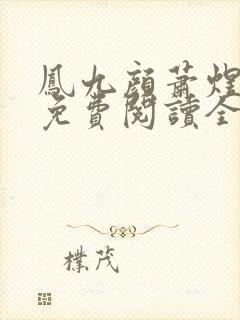 鳳九顏蕭煌
免費閱讀全
樸茂